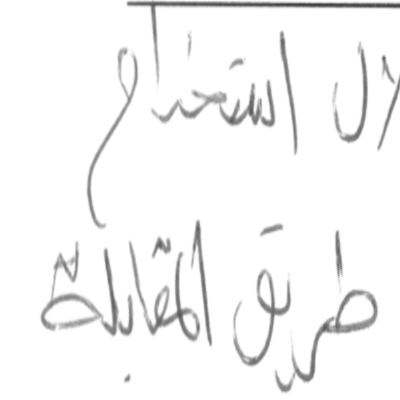 لال استخدام
طريق المقابلة